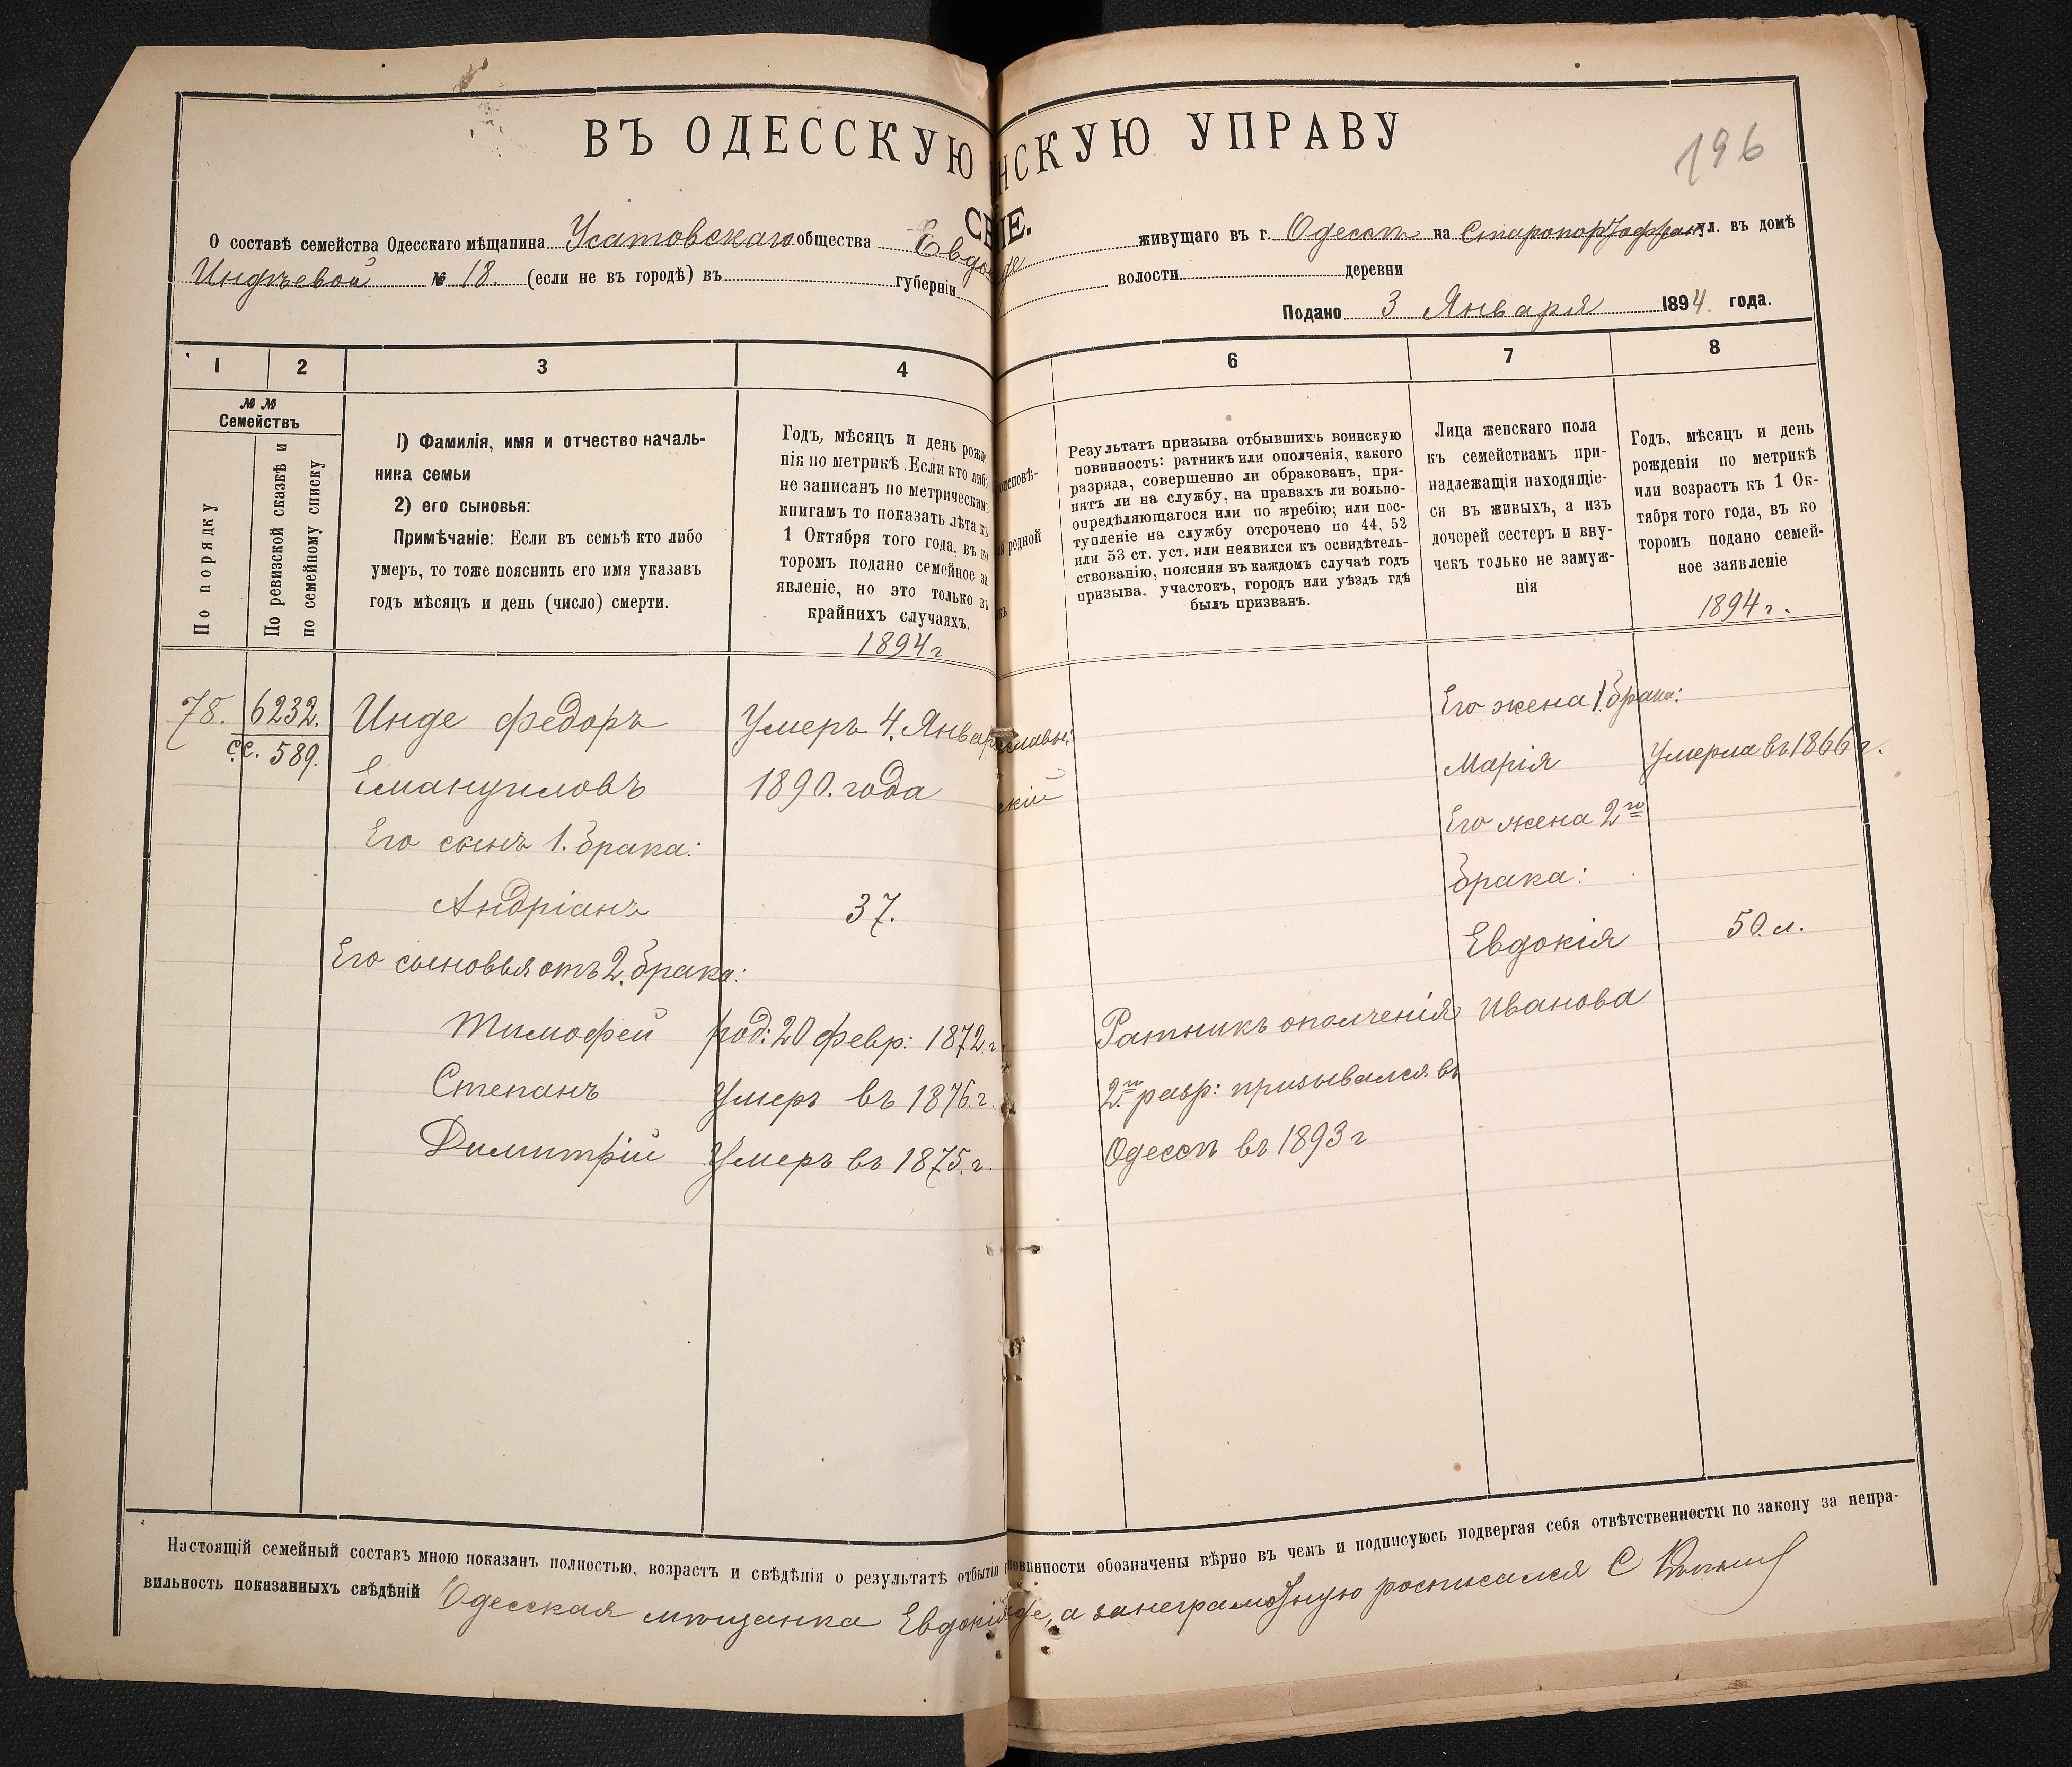 ВЪ ОДЕССКУЮ НСКУЮ УПРАВУ
196
О составѣ семейства Одесскаго мѣщанина Усатовскаго общества живущаго въ г. Одессѣ на ул. въ домѣ
Индѣевой № 18. (если не въ городѣ) въ губерніи волости деревни
Подано 3 Января 1894. года.
1
2
3
4
6
7
8
№ № Семействъ
По порядку
По ревизской сказкѣ и
по семейному списку
1) Фамилія, имя и отчество началь-
ника семьи
2) его сыновья:
Примѣчаніе: Если въ семьѣ кто либо
умеръ, то тоже пояснить его имя указавъ
годъ мѣсяцъ и день (число) смерти.
Годъ, мѣсяцъ и день рожде
нія по метрикѣ. Если кто либо
не записанъ по метрическимъ
книгамъ то показать лѣта къ
1 Октября того года, въ ко
торомъ подано семейное за
явленіе, но это только въ
крайнихъ случаяхъ.
1894 г
роисповѣ-
родной
Результатъ призыва отбывшихъ воинскую
повинность: ратникъ или ополченія, какого
разряда, совершенно ли обракованъ, при-
нятъ ли на службу, на правахъ ли вольно-
опредѣляющагося или по жребію; или пос-
тупленіе на службу отсрочено по 44, 52
или 53 ст. уст. или неявился къ освидѣтель-
ствованію, поясняя въ каждомъ случаѣ годъ
призыва, участокъ, городъ или уѣздъ гдѣ
былъ призванъ.
Лица женскаго пола
къ семействамъ при-
надлежащія находящіе-
ся въ живыхъ, а изъ
дочерей сестеръ и вну-
чекъ только не замуж-
нія
Годъ, мѣсяцъ и день
рожденія по метрикѣ
или возрастъ къ 1 Ок-
тября того года, въ ко
торомъ подано семей-
ное заявленіе
1894 г.
78. 6232. Инде Федоръ Умеръ 4. Января славный Его жена 1. брака:
с.с. 589. Емануиловъ 1890. года скій Марія Умерла въ 1866 г.
Его сынъ 1. брака: Его жена 2го
Андріанъ 37. брака:
Его сыновья отъ 2. брака: Евдокія 50. л.
Тимофей род: 20 февр: 1872. г. Ратникъ ополченія Иванова
Степанъ Умеръ въ 1876. г. 2го разр: призывался въ
Димитрій Умеръ въ 1875. г. Одессѣ въ 1893 г
Настоящій семейный составъ мною показанъ полностью, возрастъ и свѣдѣнія о результатѣ отбытія повинности обозначены вѣрно въ чемъ и подписуюсь подвергая себя отвѣтственности по закону за непра-
вильность показанныхъ свѣдѣній Одесская мѣщанка Евдокія де, а за неграмотную росписался С